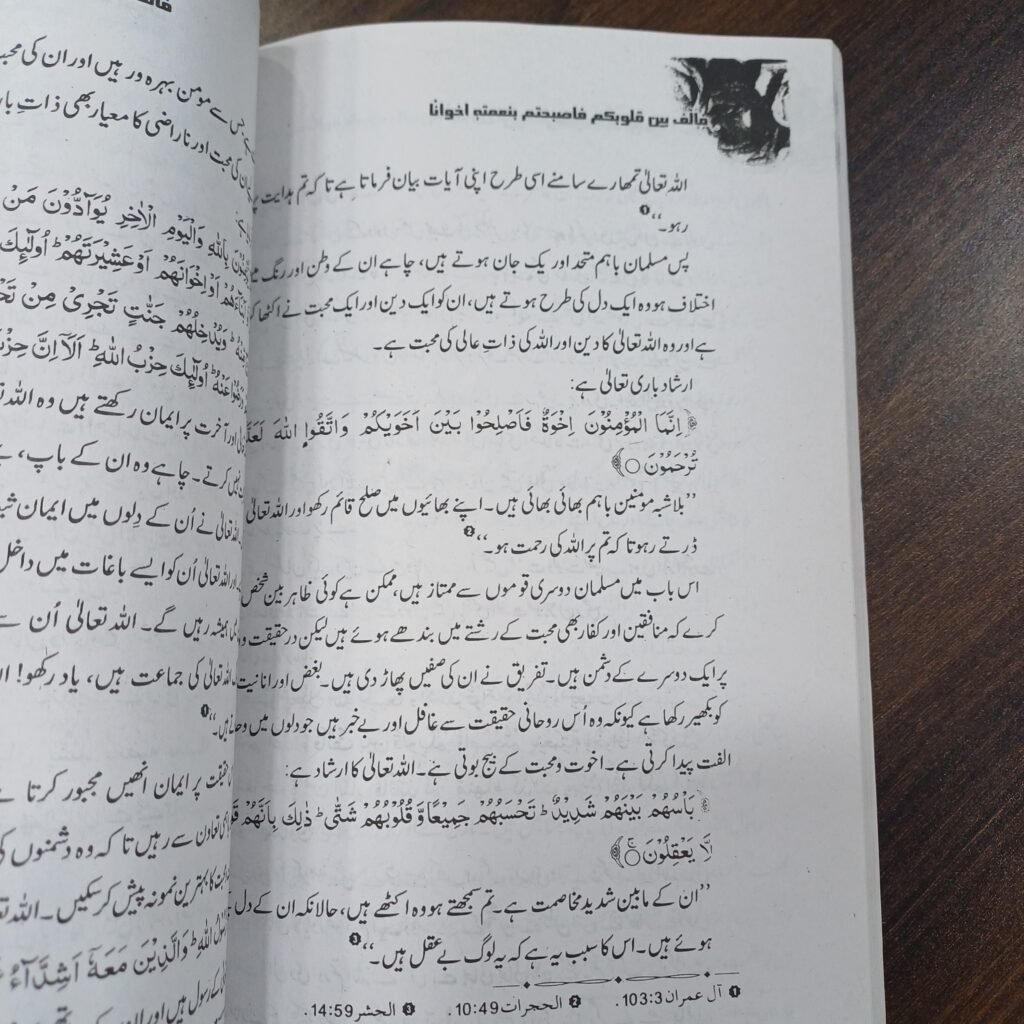 فالف بین قلوبکم فاصبحتم بنعمته اخوانا
الله تعالیٰ تمھارے سامنے اسی طرح اپنی آیات بیان فرماتا ہے تا کہ تم ہدایت پر
رہو۔‘‘❶
پس مسلمان باہم متحد اور یک جان ہوتے ہیں، چاہے ان کے وطن اور رنگ میں
اختلاف ہو وہ ایک دل کی طرح ہوتے ہیں، ان کو ایک دین اور ایک محبت نے اکٹھا کر
ہے اور وہ اللہ تعالیٰ کا دین اور اللہ کی ذاتِ عالی کی محبت ہے۔
ارشاد باری تعالیٰ ہے:
﴿اِنَّمَا الْمُؤْمِنُوْنَ اِخْوَةٌ فَاَصْلِحُوْا بَيْنَ اَخَوَيْكُمْ وَاتَّقُوا اللهَ
تُرْحَمُوْنَ ○﴾
’’بلاشبہ مومنین باہم بھائی بھائی ہیں۔ اپنے بھائیوں میں صلح قائم رکھو اور اللہ تعالیٰ
ڈرتے رہو تا کہ تم پر اللہ کی رحمت ہو۔‘‘❷
اس باب میں مسلمان دوسری قوموں سے ممتاز ہیں، ممکن ہے کوئی ظاہر بین شخص
کرے کہ منافقین اور کفار بھی محبت کے رشتے میں بندھے ہوئے ہیں لیکن در حقیقت وہ
پر ایک دوسرے کے دشمن ہیں۔ تفریق نے ان کی صفیں پھاڑ دی ہیں۔ بغض اور انانیت
کو بکھیر رکھا ہے کیونکہ وہ اُس روحانی حقیقت سے غافل اور بے خبر ہیں جو دلوں میں
الفت پیدا کرتی ہے۔ اخوت و محبت کے بیج بوتی ہے۔ اللہ تعالیٰ کا ارشاد ہے:
﴿بَاْسُهُمْ بَيْنَهُمْ شَدِيْدٌ ؕ تَحْسَبُهُمْ جَمِيْعًا وَّ قُلُوْبُهُمْ شَتّٰى ؕ ذٰلِكَ بِاَنَّهُمْ
لَّا يَعْقِلُوْنَ ○﴾
’’ان کے مابین شدید مخاصمت ہے۔ تم سمجھتے ہو وہ اکٹھے ہیں، حالانکہ ان کے دل
ہوئے ہیں۔ اس کا سبب یہ ہے کہ یہ لوگ بے عقل ہیں۔‘‘❸
❶ آل عمران 103:3. ❷ الحجرات 10:49. ❸ الحشر 14:59.
جس سے مومن بہرہ ور ہیں اور ان کی
کی محبت اور ناراضی کا معیار بھی ذاتِ
بِاللهِ وَالْيَوْمِ الْاٰخِرِ يُوَآدُّوْنَ مَنْ
اَوْ اِخْوَانَهُمْ اَوْ عَشِيْرَتَهُمْ ؕ اُولٰٓئِكَ
وَيُدْخِلُهُمْ جَنّٰتٍ تَجْرِيْ مِنْ
عَنْهُ ؕ اُولٰٓئِكَ حِزْبُ اللهِ ؕ اَلَاۤ اِنَّ
اور آخرت پر ایمان رکھتے ہیں وہ اللہ
نہیں کرتے۔ چاہے وہ ان کے باپ،
اللہ تعالیٰ نے اُن کے دِلوں میں ایمان
اللہ تعالیٰ اُن کو ایسے باغات میں داخل
ہمیشہ رہیں گے۔ اللہ تعالیٰ اُن سے
اللہ تعالیٰ کی جماعت ہیں، یاد رکھو!
ہیں۔‘‘❶
حقیقت پر ایمان انھیں مجبور کرتا ہے
تعاون سے رہیں تا کہ وہ دشمنوں
کا بہترین نمونہ پیش کر سکیں۔ اللہ
اللهِ ؕ وَالَّذِيْنَ مَعَهٗۤ اَشِدَّآءُ
کے رسول ہیں اور ان کے